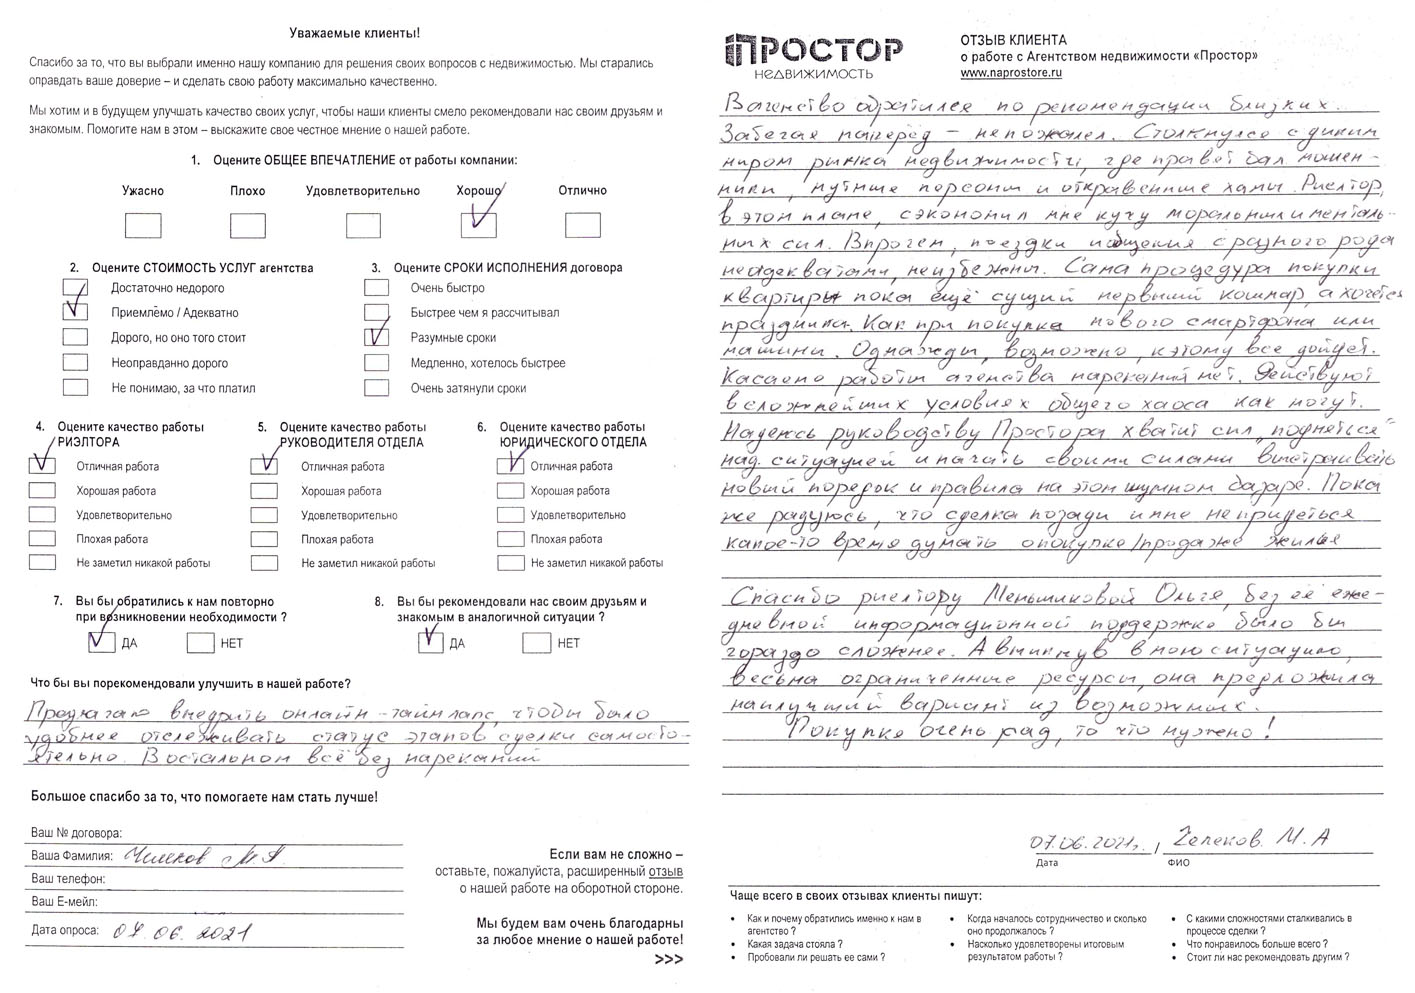 Уважаемые клиенты!
Спасибо за то, что вы выбрали именно нашу компанию для решения своих вопросов с недвижимостью. Мы старались
оправдать ваше доверие – и сделать свою работу максимально качественно.
Мы хотим и в будущем улучшать качество своих услуг, чтобы наши клиенты смело рекомендовали нас своим друзьям и
знакомым. Помогите нам в этом – выскажите свое честное мнение о нашей работе.
1. Оцените ОБЩЕЕ ВПЕЧАТЛЕНИЕ от работы компании:
Ужасно Плохо Удовлетворительно Хорошо Отлично
2. Оцените СТОИМОСТЬ УСЛУГ агентства
Достаточно недорого
Приемлёмо / Адекватно
Дорого, но оно того стоит
Неоправданно дорого
Не понимаю, за что платил
3. Оцените СРОКИ ИСПОЛНЕНИЯ договора
Очень быстро
Быстрее чем я рассчитывал
Разумные сроки
Медленно, хотелось быстрее
Очень затянули сроки
4. Оцените качество работы
РИЭЛТОРА
Отличная работа
Хорошая работа
Удовлетворительно
Плохая работа
Не заметил никакой работы
5. Оцените качество работы
РУКОВОДИТЕЛЯ ОТДЕЛА
Отличная работа
Хорошая работа
Удовлетворительно
Плохая работа
Не заметил никакой работы
6. Оцените качество работы
ЮРИДИЧЕСКОГО ОТДЕЛА
Отличная работа
Хорошая работа
Удовлетворительно
Плохая работа
Не заметил никакой работы
7. Вы бы обратились к нам повторно
при возникновении необходимости ?
ДА НЕТ
8. Вы бы рекомендовали нас своим друзьям и
знакомым в аналогичной ситуации ?
ДА НЕТ
Что бы вы порекомендовали улучшить в нашей работе?
Предлагаю внедрить онлайн-таймлапс, чтобы было
удобнее отслеживать статус этапов сделки самосто-
ятельно. В остальном всё без нареканий
Большое спасибо за то, что помогаете нам стать лучше!
Ваш № договора:
Ваша Фамилия: Челеков М.А.
Ваш телефон:
Ваш Е-мейл:
Дата опроса: 07.06.2021
Если вам не сложно –
оставьте, пожалуйста, расширенный отзыв
о нашей работе на оборотной стороне.
Мы будем вам очень благодарны
за любое мнение о нашей работе!
>>>
ПРОСТОР
НЕДВИЖИМОСТЬ
ОТЗЫВ КЛИЕНТА
о работе с Агентством недвижимости «Простор»
www.naprostore.ru
В агенство обратился по рекомендации близких.
Забегая наперёд – не пожалел. Столкнулся с диким
миром рынка недвижимости, где правят бал мошен-
ники, мутные персоны и откравенные хамы. Риелтор,
в этом плане, сэкономил мне кучу моральных и менталь-
ных сил. Впрочем, поездки и общения с разного рода
неадекватами, неизбежны. Сама процедура покупки
квартиры пока ещё сущий нервный кошмар, а хочется
праздника. Как при покупке нового смартфона или
машины. Однажды, возможно, к этому все дойдет.
Касаемо работы агенства нареканий нет. Действуют
в сложнейших условиях общего хаоса как могут.
Надеюсь руководству Простора хватит сил "подняться"
над ситуацией и начать своими силами выстраивать
новый порядок и правила на этом шумном базаре. Пока
же радуюсь, что сделка позади и мне не придеться
какое-то время думать о покупке/продаже жилья
Спасибо риелтору Меньшиковой Ольге, без её еже-
дневной информационной поддержке было бы
гораздо сложнее. А вникнув в мою ситуацию,
весьма ограниченные ресурсы, она предложила
наилучший вариант из возможных.
Покупке очень рад, то что нужно!
07.06.2021г., Челеков М.А
Дата ФИО
Чаще всего в своих отзывах клиенты пишут:
• Как и почему обратились именно к нам в
агентство ?
• Какая задача стояла ?
• Пробовали ли решать ее сами ?
• Когда началось сотрудничество и сколько
оно продолжалось ?
• Насколько удовлетворены итоговым
результатом работы ?
• С какими сложностями сталкивались в
процессе сделки ?
• Что понравилось больше всего ?
• Стоит ли нас рекомендовать другим ?